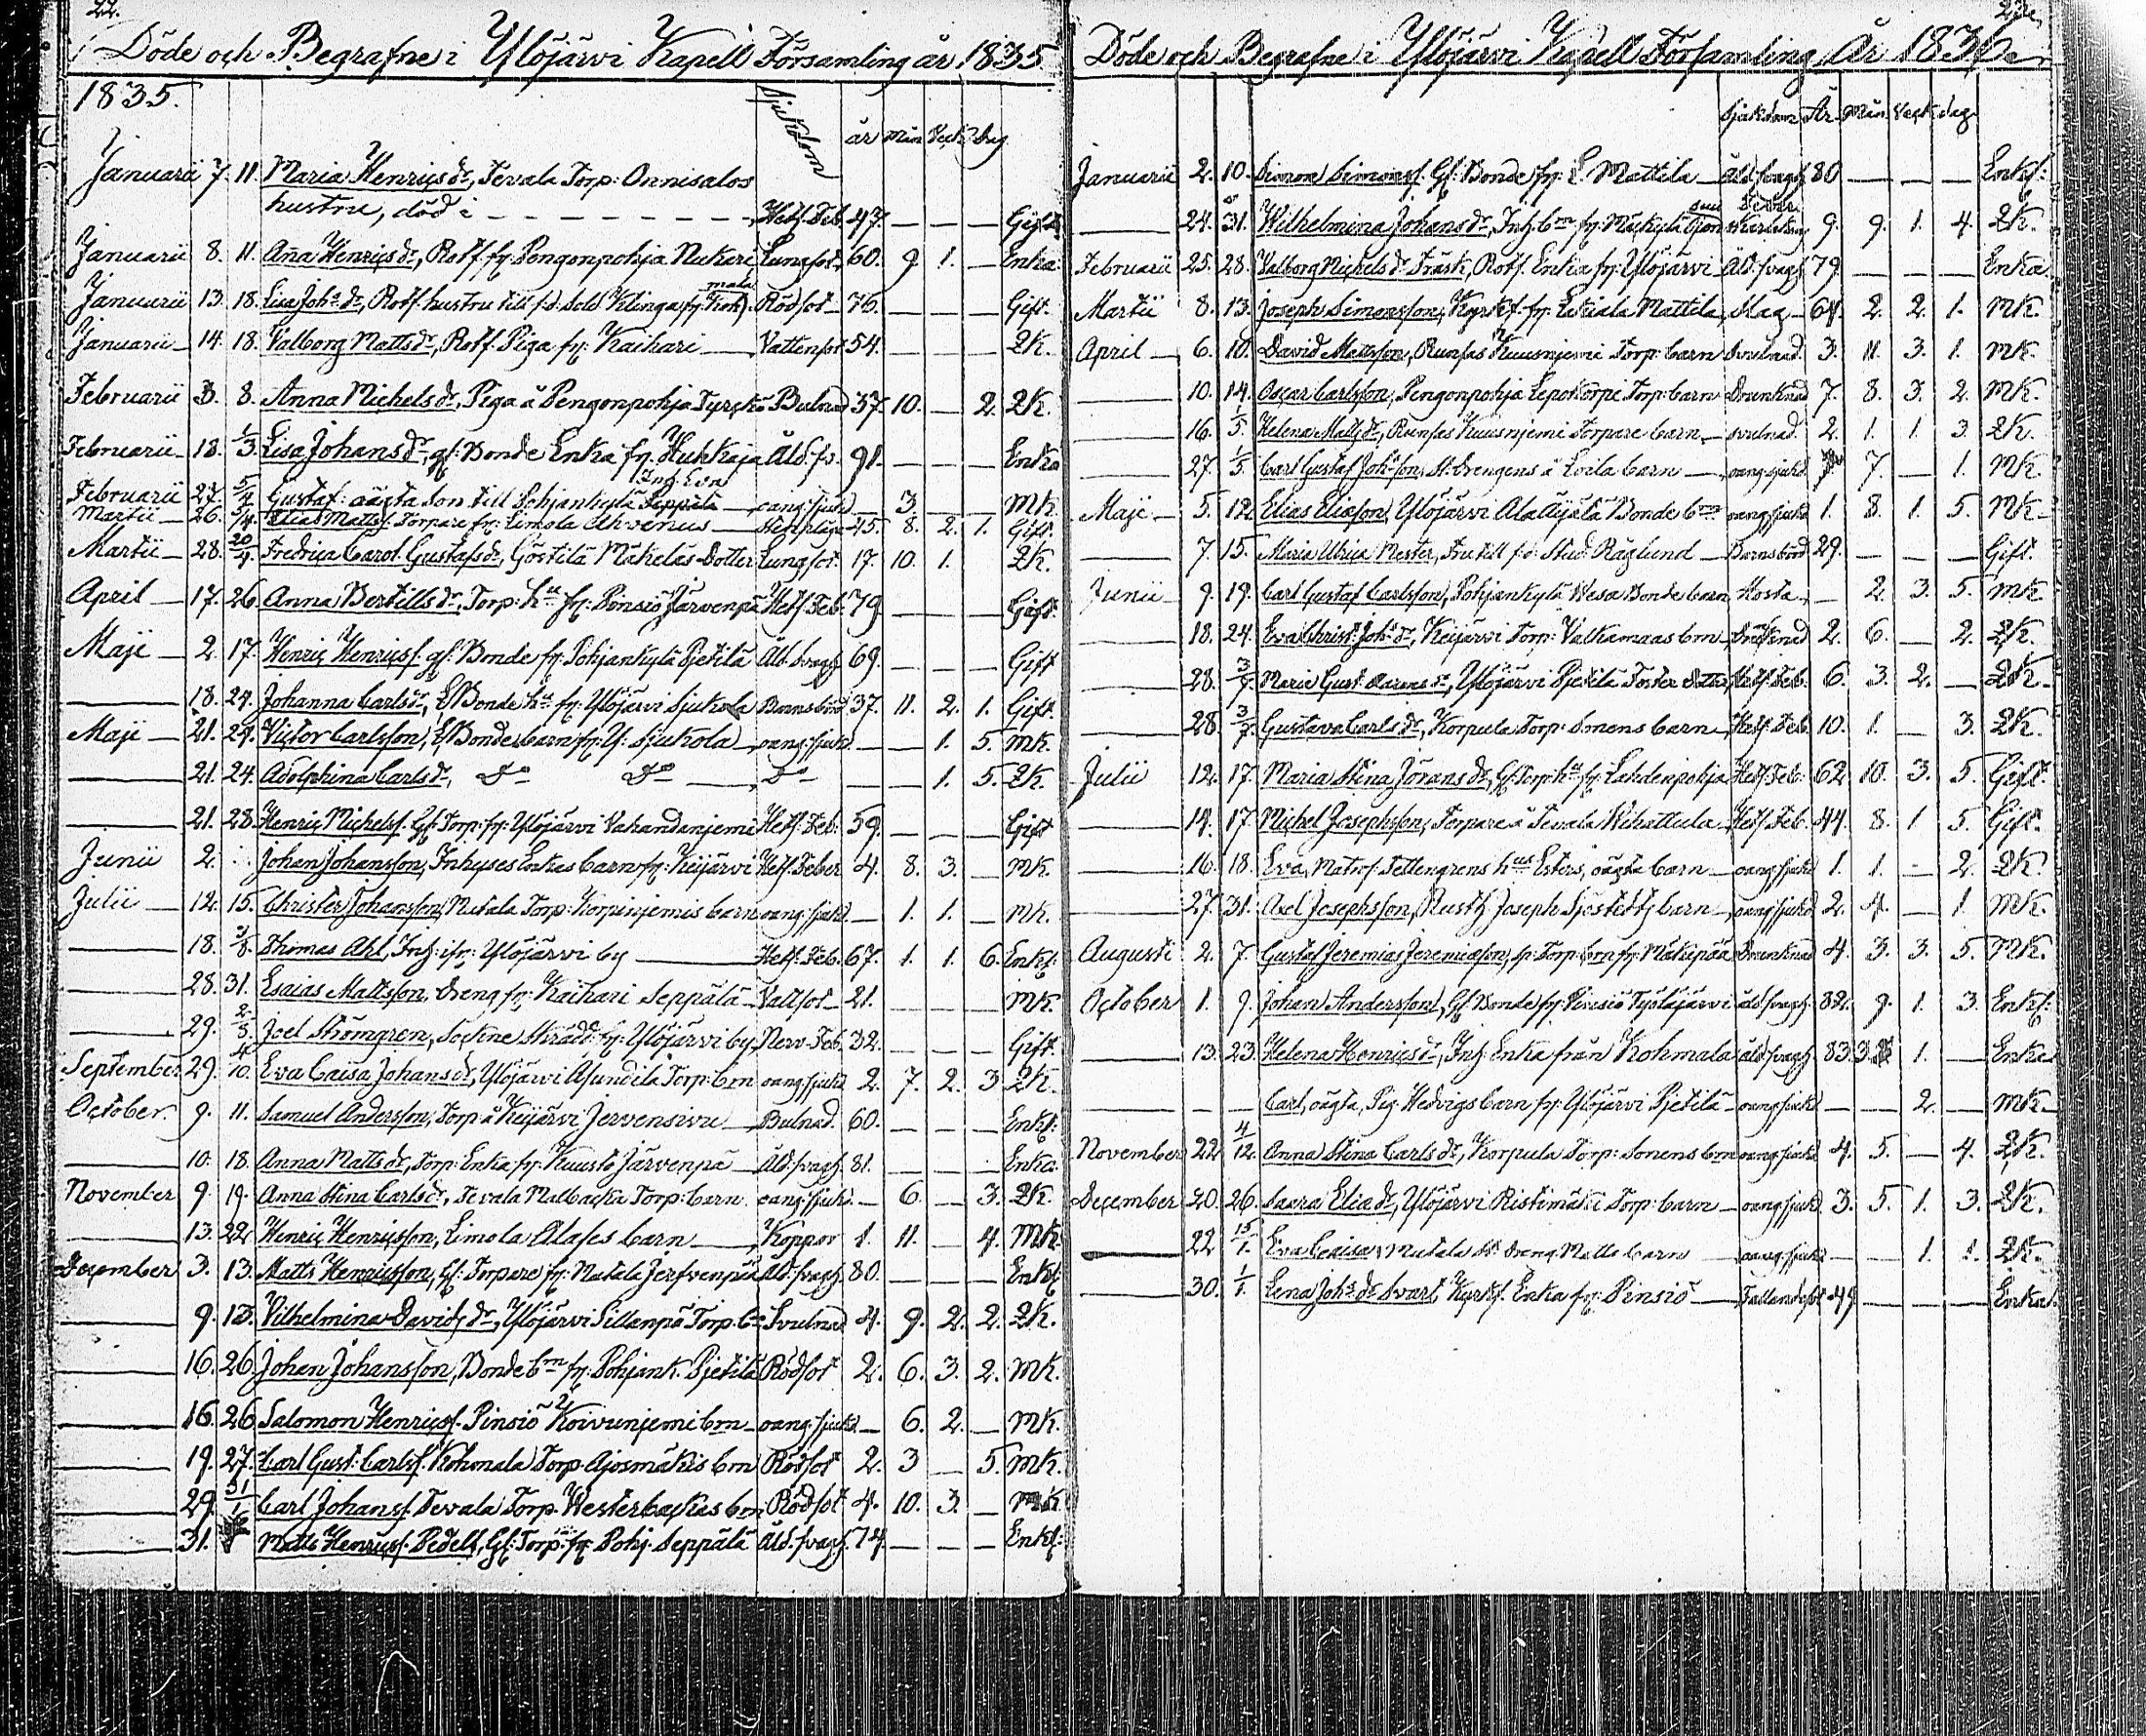 22.
Döde och Begrafne i Ylöjärvi Kapell Församling år 1835
1835. Sjukdom år Mån Veck Dag
Januarii 7. 11. Maria Henriçsdr, Tevala Torp: Onnisalos
hustru, död i - - - - - - - - Hets. Feb. 47. — — — Gift.
Januarii 8. 11. Aña Henriçsdr, Rotf. frn: Pengonpohja Neckeri Lungsot. 60. 9 1. — Enka.
Januarii 13. 18. Lisa Johsdr, Rotf. hustru till f.d. Sold Klinga frn: Kohmala Rödsot — 76. — — — Gift.
Januarii — 14. 18. Valborg Mattsdr, Rotf. Piga frn: Kaihari — Vattensot 54. — — — QK.
Februarii 3. 8. Anna Michelsdr, Piga å Pengonpohja Tyrckö Bulnad 37. 10. — 2. QK.
Februarii — 18. 1/3. Lisa Johansdr, gf. Bonde Enka frn: Huhkaja Åld. sv. 91. — — — Enka
Inh: Eva
Februarii 27. 5/4 Gustaf: oägta Son till Pohjankylä Seppälä — oang. sjuk — 3. — — MK.
Martii — 26. 5/4. Elias Mattss. Torpare frn: Limola Ahvenus — 45. 8. 2. 1. Gift.
Martii — 28. 20/4. Fredrica Carol. Gustafsdr, Göstilä Mäkeläs Dotter Lungsot. 17. 10. 1. QK.
April — 17. 26. Anna Bertillsdr, Torp: hu frn: Pinsiö Järvenpä Hets. Feb. 79. — — — Gift.
Maji — 2. 17. Henriç Henriçss. gf. Bonde frn: Pohjankylä Pjetilä Åld. Svagh. 69. — — — Gift
— 18. 24. Johanna Carlsdr, Bonde hu frn: Ylöjärvi Sjukola Barnsbörd 37. 11. 2. 1. Gift.
Maji — 21. 24. Victor Carlsson, Bonde barn frn: Yl: Sjukola — oang: sjukd. — — 1. 5. MK.
— 21. 24. Adolphina Carlsdr, Do Do — Do — — 1. 5. QK.
— 21. 28. Henriç Michelss. Gf: Torp: frn: Ylöjärvi Vahandanjemi Hets. Feb. 59. — — — Gift
Junii 2. Johan Johansson, Inhyses Enkas barn frn: Keijärvi Hets. Feber 4. 8. 3. — MK.
Julii — 12. 15. Christer Johansson, Mutala Torp: Korpinjemis barn oang: sjukd. — 1. 1. — MK.
— 18. 2/8. Thomas Ahl, Inh: ifrn: Ylöjärvi by — Hets. Feb. 67. 1. 1. 6. Enkl.
— 28. 31. Esaias Mattsson, Dreng frn: Kaihari Seppälä — Vattsot — 21. — — — MK.
— 29. 2/8. Joel Strömgren, Sockne Skrädd: frn: Ylöjärvi by, Nerv. Feb. 32. — — — Gift.
September 29. 4/10. Eva Caisa Johansdr, Ylöjärvi Asundila Torp: brn oang: sjukd. 2. 7. 2. 3. QK.
October 9. 11. Samuel Andersson, Torp å Keijärvi Jervensivu — Bulnad. 60. — — — Enkl.
— 10. 18. Anna Mattsdr, Torp: Enka frn: Kuusto Järvenpä — Åld. svagh. 81. — — — Enka.
November 9. 19. Anna Stina Carlsdr, Tevala Malbacka Torp: barn. oang: sjukd. — 6. — 3. QK.
— 13. 22. Henriç Henriçsson, Limola Alases barn — Koppor 1. 11. — 4. MK.
December 3. 13. Matts Henriçsson, Gf: Torpare frn: Mutala Jerfvenpää Åld. svagh. 80. — — — Enkl.
— 9. 13. Vilhelmina Davidsdr, Ylöjärvi Sillanpä Torp. brn Svulnad 4. 9. 2. 2. QK.
— 16. 26. Johan Johansson, Bonde brn frn: Pohjank. Pjetilä Rödsot 2. 6. 3. 2. MK.
— 16. 26. Salomon Henriçss. Pinsiö Koivunjemi brn — oang: sjukd. — 6. 2. — MK.
— 19. 27. Carl Gust. Carlss. Kohmala Torp. Ajosmäkis brn Rödsot 2. 3 — 5. MK.
— 29. 31/1 Carl Johanss. Tevala Torp. Westerbackas brn Rödsot 4. 10. 3. — MK
— 31. Matts Henriçss. Pedell, Gf: Torp: frn: Pohj. Seppälä Åld. svagh. 74. — — — Enkl.
Döde och Begrafne i Ylöjärvi Kapell Församling År 1836.
Sjukdom År. Mån. Veck. dag.
Januarii 2. 10. Simon Simonss. Gf: Bonde frn: L. Mattila — åld. svagh. 80. — — — Enkl.
— 24. 31. Wilhelmina Johansdr, Inh: brn frn: Mäkkylä 9. 9. 1. 4. QK.
Februarii 25. 28. Valborg Michelsdr Träsk, Rotf. Enka frn: Ylöjärvi Åld. svagh. 79. — — — Enka.
Martii 8. 13. Joseph Simonsson, Kyrkf. frn: Mattila, Slag — 64. 2. 2. 1. MK.
April — 6. 10. David Mattsson, Runsas Kuusnjemi Torp: barn Svulnad. 3. 11. 3. 1. MK.
— 10. 14. Oscar Carlsson, Pengonpohja Lepokorpi Torp: barn Drunknad 7. 8. 3. 2. MK.
— 16. 1/5. Helena Mattsdr, Runsas Kuusnjemi Torpare barn — svulnad. 2. 1. 1. 3. QK.
— 27. 1/5. Carl Gustaf Johsson, St: Drengens å Loila barn — oang: sjukd. 7. — 1. MK.
Maji — 5. 12. Elias Eliasson, Ylöjärvi Alaäijälä Bonde brn oang: sjukd. 1. 8. 1. 5. MK.
— 7. 15. Maria Ulrica Nester, Fru till f:d: Stud. Räglund — Barnsbörd 29. — — — Gift.
Junii — 9. 19. Carl Gustaf Carlsson, Pohjankylä Wasa Bonde barn Hosta — 2. 3. 5. MK.
— 18. 24. Eva Christ. Johsdr, Keijärvi Torp: Valkamaas brn — Drunknad 2. 6. — 2. QK.
— 28. 3/7. Maria Gust. Aaronsdr, Ylöjärvi Pjetilä Foster dotter Hets. Feb. 6. 3. 2. — QK.
— 28. 3/7. Gustava Carlsdr, Korpula Torp: Sonens barn — Hets. Feb. 10. 1. — 3. QK.
Julii 12. 17. Maria Stina Göransdr, Gf. Torp: hu frn: Lahdenpohja Hets. Feb. 62. 10. 3. 5. Gift.
— 14. 17. Michel Josephsson, Torpare å Tevala Wihattula Hets. Feb. 44. 8. 1 5. Gift.
— 16. 18. Eva, Matros: Tettengrens hus Esters, oägta barn — oang: sjukd. 1. 1. — 2. QK.
— 27. 31. Axel Josephsson, Rusth: Joseph Sjöstedts barn — oang: sjukd. 2. 4. — 1 MK.
Augusti 2. 7. Gustaf Jeremias Jeremiasson, Torp: brn frn: Mäkipää Drunknad 4. 3. 3. 5. MK.
October 1. 9. Johan Andersson, Gf: Bonde frn: Pinsiö Työläjärvi åld. svagh. 82. 9. 1. 3. Enkl.
— 13. 23. Helena Henriçsdr, Inh: Enka från Kohmala åld. svagh. 83. 3. 1. — Enka.
— — — Carl, oägta, Pig: Hedvigs barn frn: Ylöjärvi Pjetilä — oang: sjukd. — — 2. — MK.
November 22. 4/12. Anna Stina Carlsdr, Korpula Torp: Sonens brn oang: sjukd. 4. 5. — 4. QK.
December 20. 26. Saara Eliædr, Ylöjärvi Ristimäki Torp: barn — oang: sjukd. 3. 5. 1. 3. QK.
— 22 15/1. Eva Caisa, Mutala St. Dreng. Matts barn — oang: sjukd. — — 1. 1. QK.
— 30. 1/1. Lena Johsdr Svart, Kyrkf. Enka frn: Pinsiö — Fallandesot 49. — — — Enka.